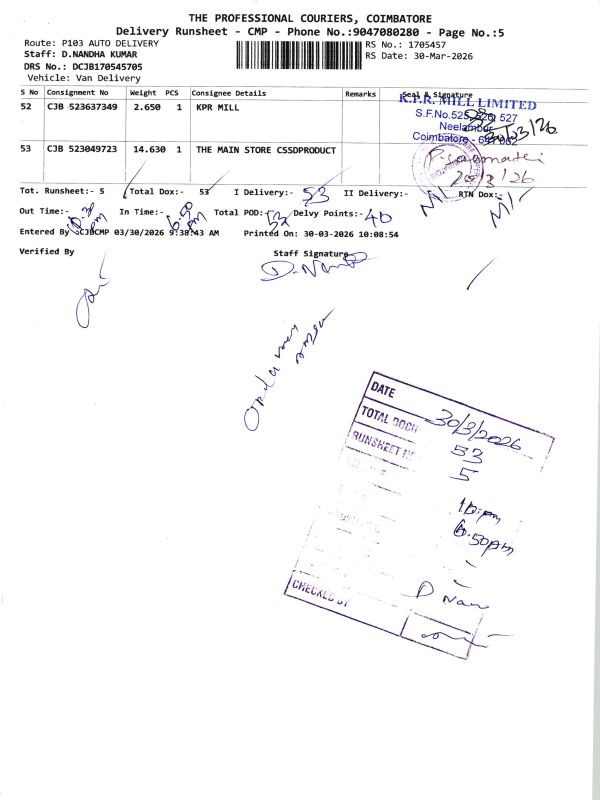 THE PROFESSIONAL COURIERS, COIMBATORE
Delivery Runsheet - CMP - Phone No.:9047080280 - Page No.:5
Route: P103 AUTO DELIVERY
RS No.: 1705457
Staff: D.NANDHA KUMAR
RS Date: 30-Mar-2026
DRS No.: DCJB170545705
Vehicle: Van Delivery
S No Consignment No Weight PCS Consignee Details Remarks Seal & Signature
52 CJB 523637349 2.650 1 KPR MILL
K.P.R. MILL LIMITED
S.F.No.525, 526, 527
Neelambur
Coimbatore - 641 062
30/03/26
53 CJB 523049723 14.630 1 THE MAIN STORE CSSDPRODUCT
Tot. Runsheet:- 5 Total Dox:- 53 I Delivery:- 53 II Delivery:- RTN Dox:-
Out Time:- In Time:- 6.50 pm Total POD:- 53 Delvy Points:- 40
Entered By :CJBCMP 03/30/2026 9:38:43 AM Printed On: 30-03-2026 10:08:54
Verified By Staff Signature
D. Nan
DATE 30/3/2026
TOTAL DOCU 53
RUNSHEET N 5
6.50pm
D Nan
CHECKED BY